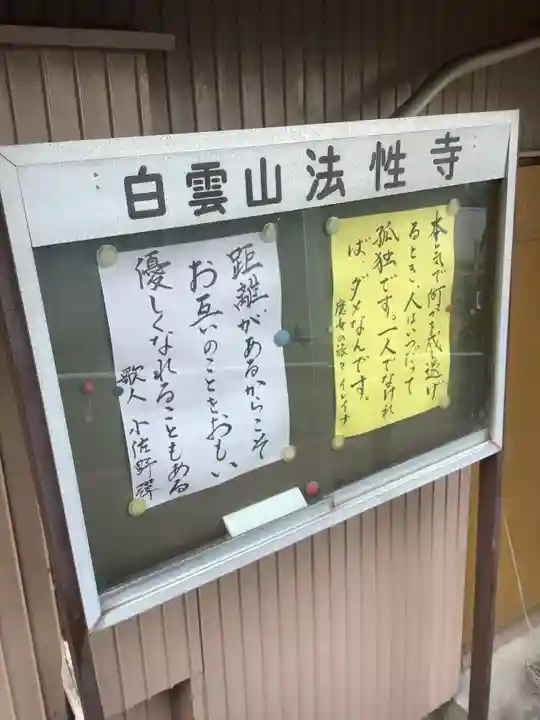 白雲山法性寺
本気で何かを成し遂げ
るとき、人はいつだって
孤独です。一人でなけれ
ば、ダメなんです。
魔女の旅々 イレイナ
距離があるからこそ
お互いのことをおもい
優しくなれることもある
歌人 小佐野彈